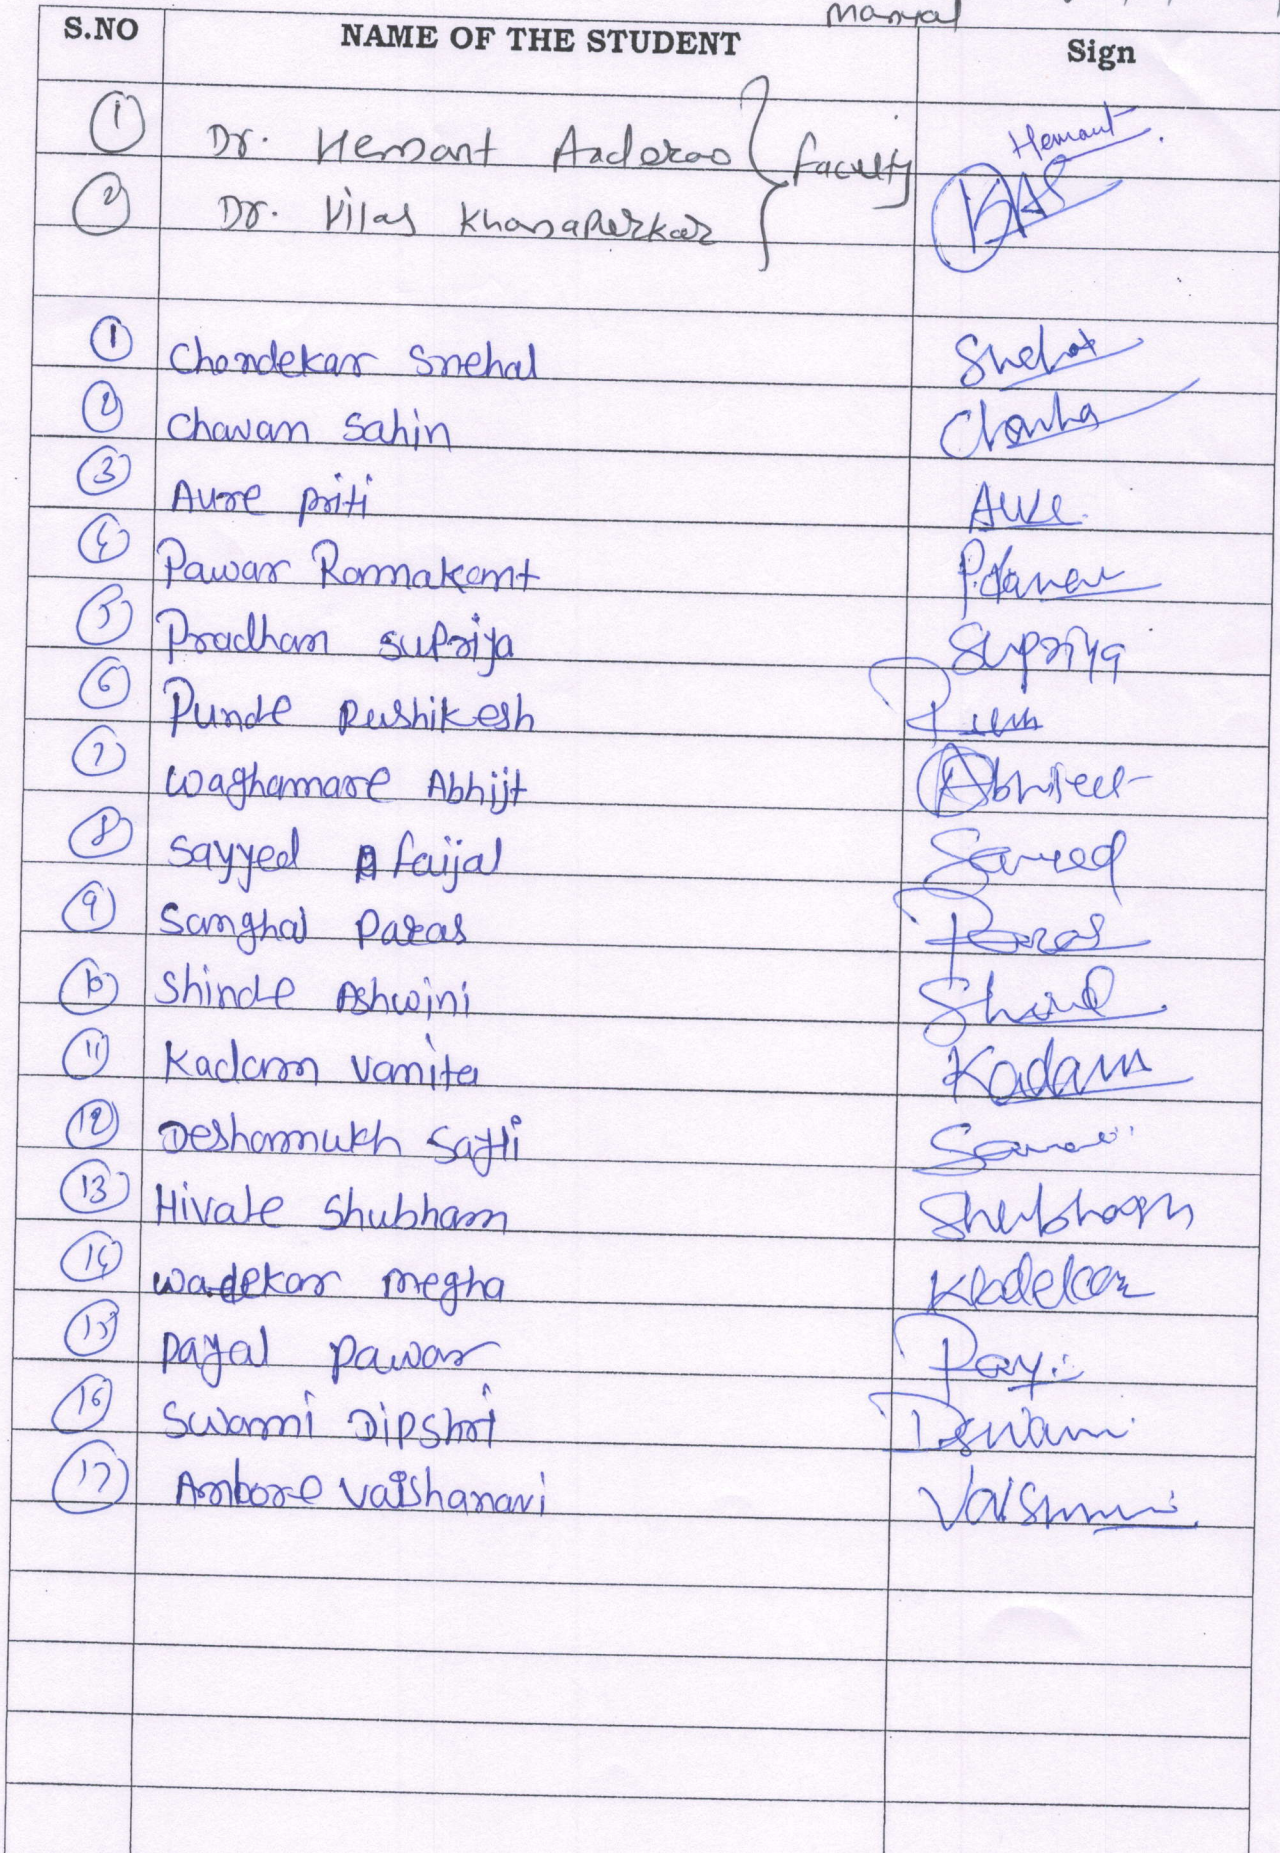 manyal
S.NO NAME OF THE STUDENT Sign
1 Dr. Hemant Aadorao Hemant
faculty
2 Dr. Vilas Khanaperkar
1 Chondekar Snehal Snehal
2 Chavan Sahin
3 Aure priti Aure
4 Pawar Ramakant
5 Pradhan Supriya Supriya
6 Punde Rushikesh
7 Waghamare Abhijt Abhijeet
8 Sayyed faijal Sayyed
9 Sanghal Paras Paras
10 Shinde Ashwini
11 Kadam Vanita Kadam
12 Deshammukh
13 Hivale Shubham Shubham
14 Wadekar megha
15 Payal Pawar
16 Swami Dipshri Dswami
17 Ambore Vaishanavi